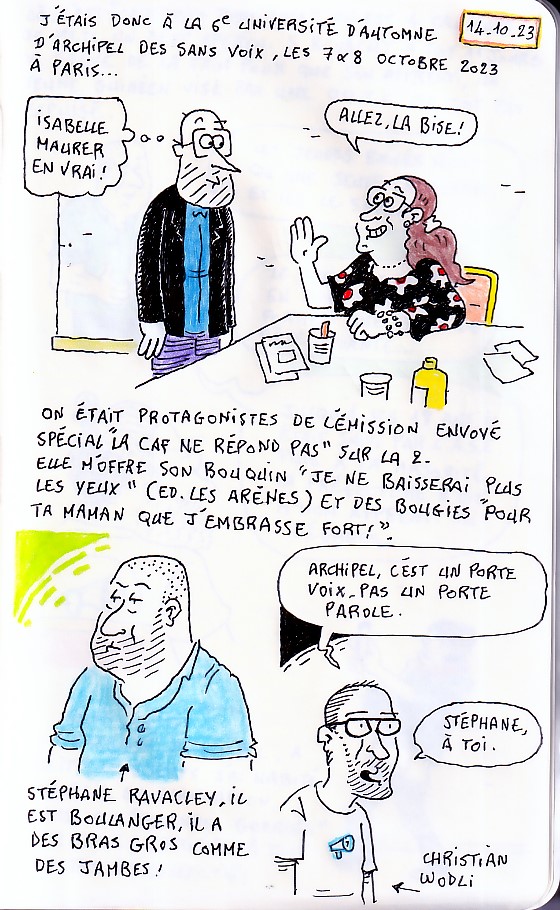 J'ÉTAIS DONC À LA 6e UNIVERSITÉ D'AUTOMNE
14_10_23
D'ARCHIPEL DES SANS VOIX, LES 7 & 8 OCTOBRE 2023
À PARIS...
ISABELLE
MAURER
EN VRAI!
ALLEZ, LA BISE!
ON ÉTAIT PROTAGONISTES DE L'ÉMISSION ENVOYÉ
SPÉCIAL "LA CAF NE RÉPOND PAS" SUR LA 2_
ELLE M'OFFRE SON BOUQUIN "JE NE BAISSERAI PLUS
LES YEUX" (ED. LES ARÈNES) ET DES BOUGIES "POUR
TA MAMAN QUE J'EMBRASSE FORT!".
ARCHIPEL, C'EST UN PORTE
VOIX_PAS UN PORTE
PAROLE.
STÉPHANE,
À TOI.
STÉPHANE RAVACLEY, iL
EST BOULANGER, iL A
DES BRAS GROS COMME
DES JAMBES!
CHRISTIAN
WODLI